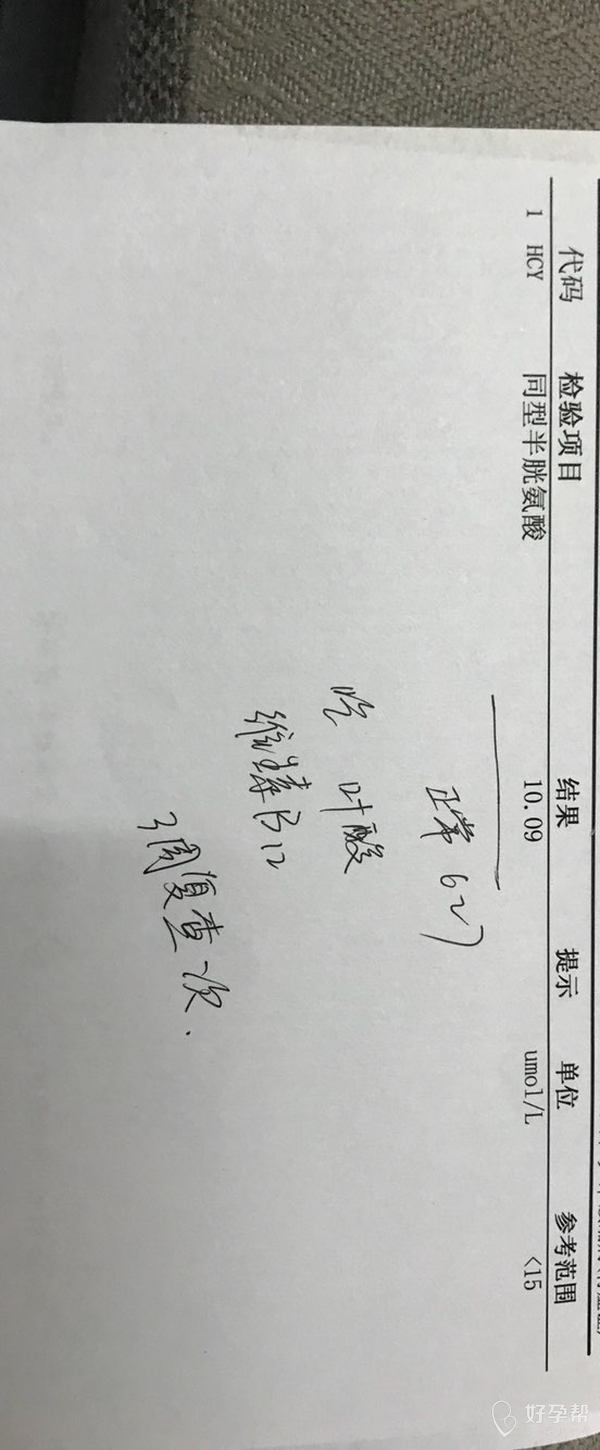 代码 检验项目 结果 提示 单位 参考范围
1 HCY 同型半胱氨酸 10.09 umol/L <15
正常6~7
吃 叶酸
维生素B12
3周复查一次.
好孕帮